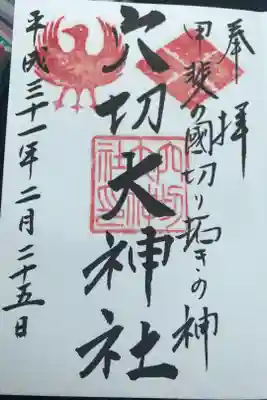 奉拝
甲斐の國切り拓きの神
穴切大神社
平成三十一年二月二十五日